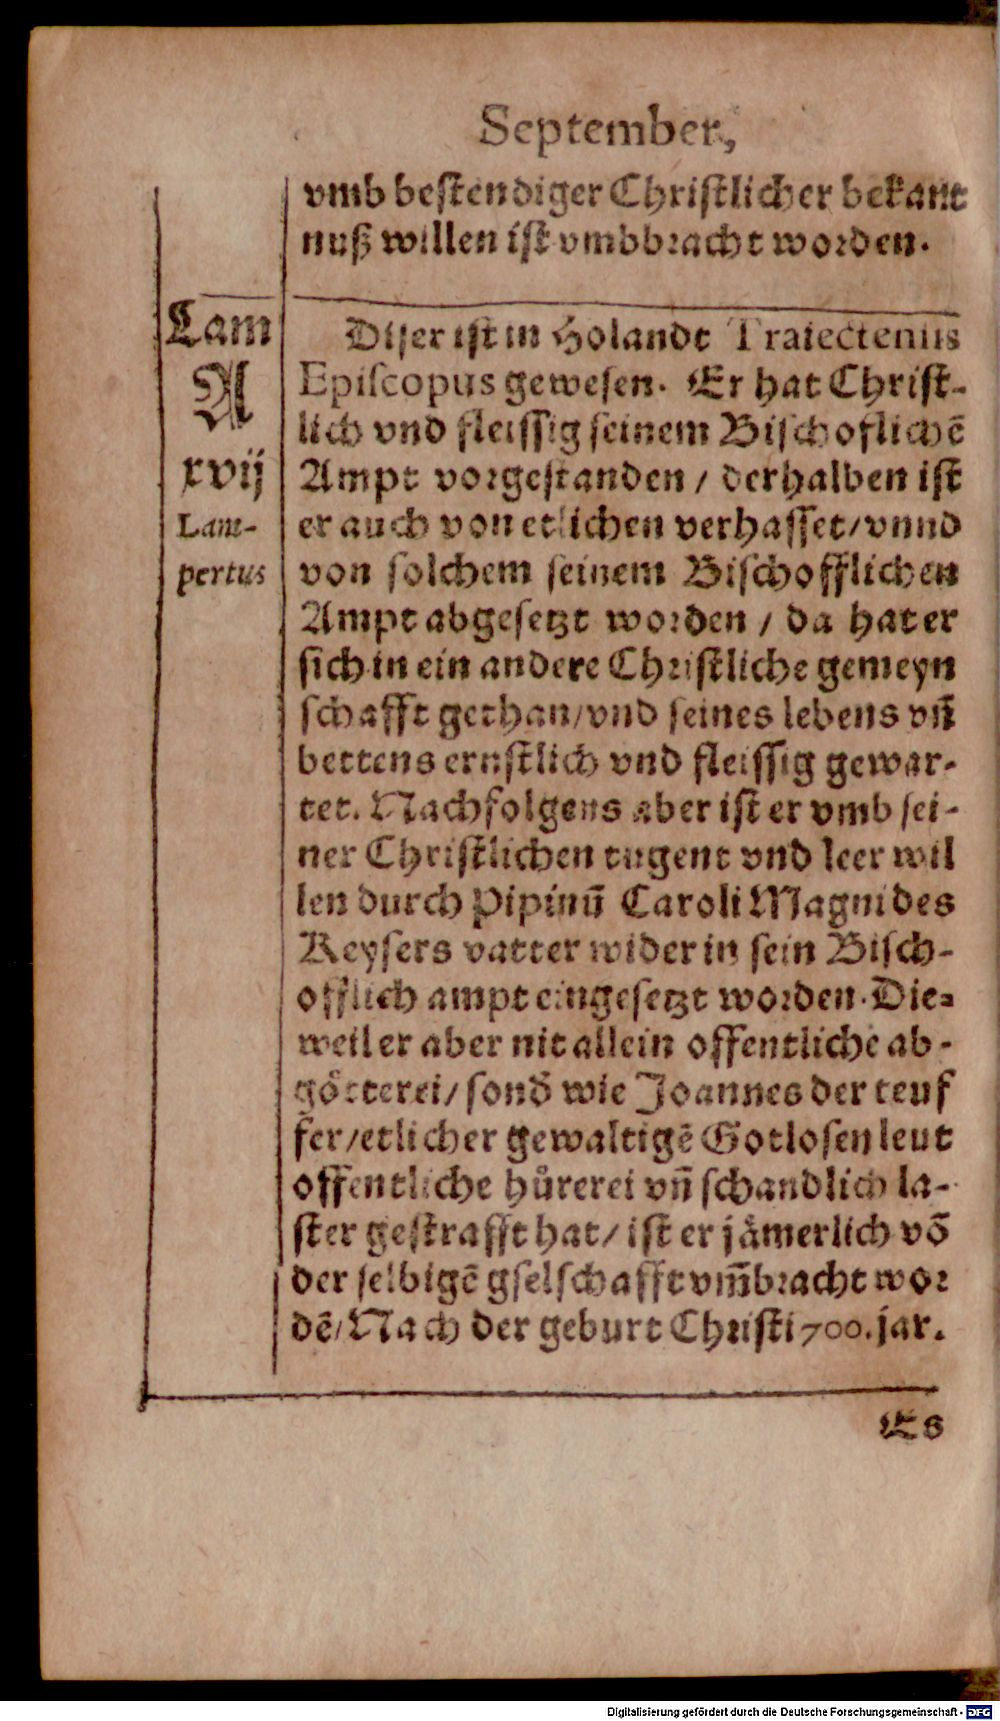 September,
vmb bestendiger Christlicher bekant
nuß willen ist vmbbracht worden.
Lam
A
xvij
Lam-
pertus
Diser ist in Holandt Traiectenus
Episcopus gewesen. Er hat Christ-
lich vnd fleissig seinem Bischoflichē
Ampt vorgestanden / derhalben ist
er auch von etlichen verhasset / vnnd
von solchem seinem Bischofflichen
Ampt abgesetzt worden / da hat er
sich in ein andere Christliche gemeyn
schafft gethan / vnd seines lebens vñ
bettens ernstlich vnd fleissig gewar-
tet. Nachfolgens aber ist er vmb sei-
ner Christlichen tugent vnd leer wil
len durch Pipinū Caroli Magni des
Keysers vatter wider in sein Bisch-
offlich ampt eingesetzt worden. Die-
weil er aber nit allein offentliche ab-
goͤtterei / sonđ wie Joannes der teuf
fer / etlicher gewaltigē Gotlosen leut
offentliche huͤrerei vñ schandlich la-
ster gestrafft hat / ist er jaͤmerlich vō
der selbigē gselschafft vm̄bracht wor
dē / Nach der geburt Christi 700. jar.
Es
Digitalisierung gefördert durch die Deutsche Forschungsgemeinschaft - DFG